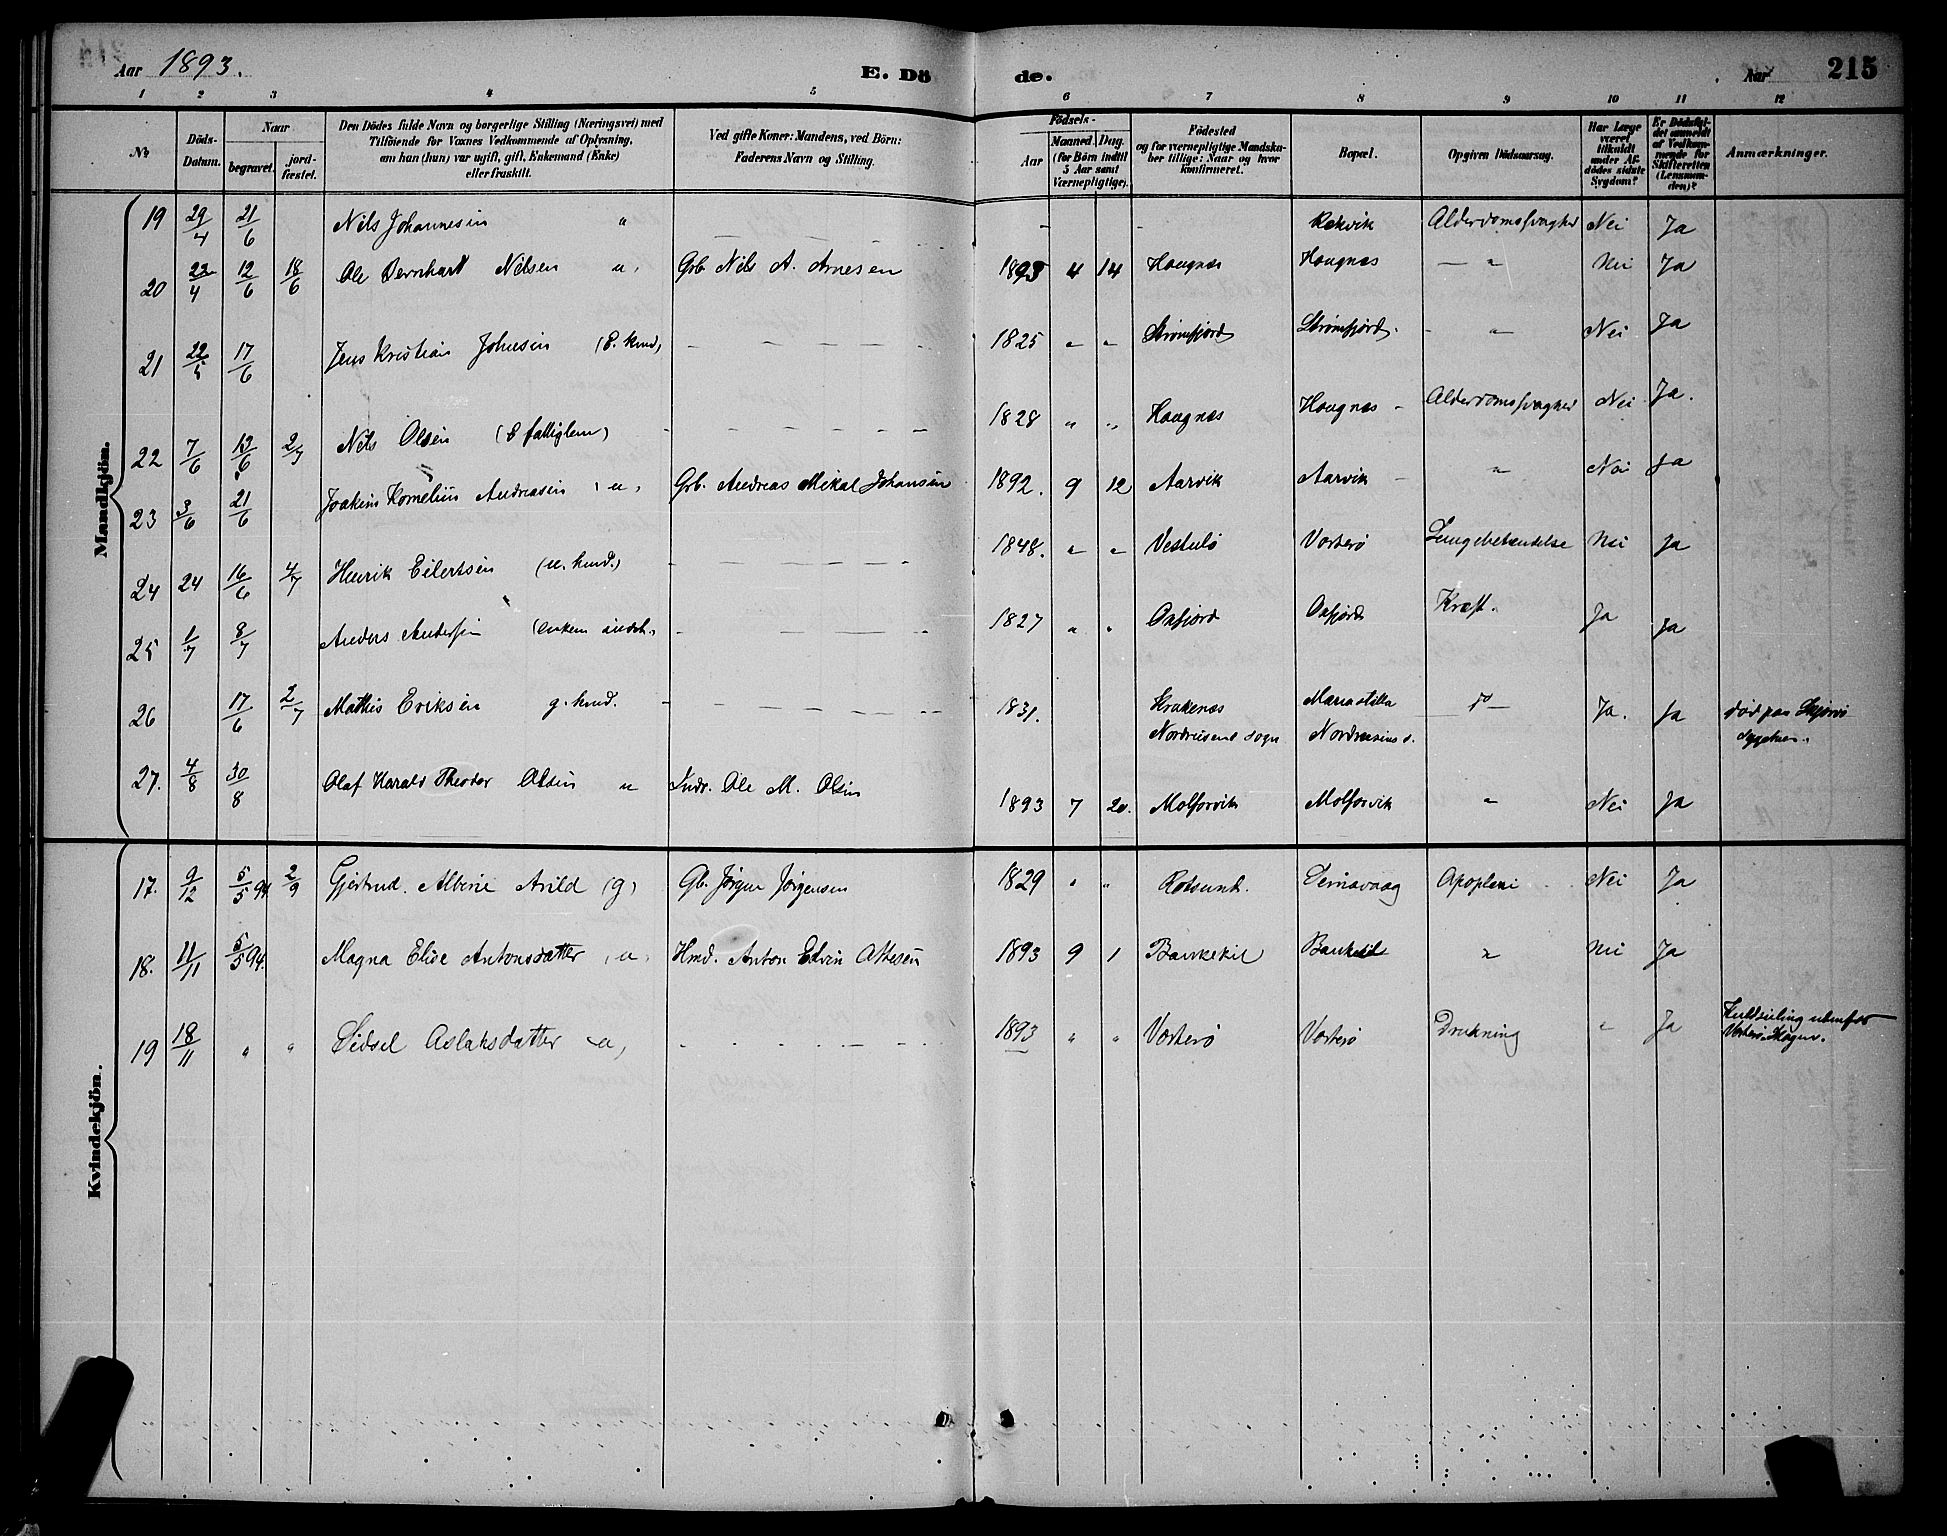 Aar 1893. E. Dö de. Aar 215
1 2 3 4 5 6 7 8 9 10 11 12
No
Döds-Datum.
Naar
begravet.
jord-fæstet.
Den Dödes fulde Navn og borgerlige Stilling (Næringsvei) med
Tilföiende for Voxnes Vedkommende af Oplysning,
om han (hun) var ugift, gift, Enkemand (Enke)
eller fraskilt.
Ved gifte Koner: Mandens, ved Börn:
Faderens Navn og Stilling.
Födsels-
Aar
Maaned. Dag.
(for Börn indtil
5 Aar samt
Værnepligtige).
Födested
og for værnepligtige Mandska-
ber tillige: Naar og hvor
konfirmeret.
Bopæl.
Opgiven Dödsaarsag.
Har Læge
været
tilkaldt
under Af-
dödes sidste
Sygdom?
Er Dödsfal-
det anmeldt
af Vedkom-
mende for
Skifteretten
(Lensman-
den)?
Anmærkninger.
Mandkjön.
19 29/4 21/6 Nils Johannesen " - - Rakvik Alderdomssvaghed Nei Ja
20 22/4 12/6 18/6 Ole Bernhart Nilsen u, Grb Nils A. Arnesen 1893 4 14 Haugnæs Haugnæs — " Nei Ja
21 22/5 17/6 Jens Kristian Johnsen 1825 " " Strømfjord Strømfjord. - " Nei Ja
22 7/6 13/6 2/7 Nils Olsen 1828 " " Haugnæs Haugnæs - Alderdomssvaghed Nei Ja.
23 3/6 21/6 Joakim Kornelius Andreasen u, Grb. Andreas Mikal Johansen 1892. 9 12 Aarvik Aarvik - " Nei Ja
24 24 16/6 4/7 Henrik Eilertsen 1848. " " Vorterø Lungebetændelse Nei Ja
25 1/7 8/7 Anders Andersen 1827 " " Oxfjord Oxfjord Kræft. Ja Ja
26 17/6 2/7 Mathis Eriksen 1831. Krakenæs Nordreisens sogn d° Ja. Ja død paa Skjervø
sygehus.
27. 4/8 30/8 Olaf Harald Theodor Olsen u Indr. Ole M. Olsen 1893 7 20. " Nei Ja
Kvindekjön.
17. 9/12 5/5 94 2/9 Gjertrud. Albine Arild (g) Gb. Jørgen Jørgensen 1829 " " Rotsund. Apoplexi Nei Ja
18. 11/11 5/5 94. Magna Elise Antonsdatter u, Hmd. Anton Edvin 1893 9 1 " Nei Ja
19 18/11 " " Sidsel Aslaksdatter u, 1893 " " Vorterø Vorterø Drukning " Ja Kuldseiling udenfor